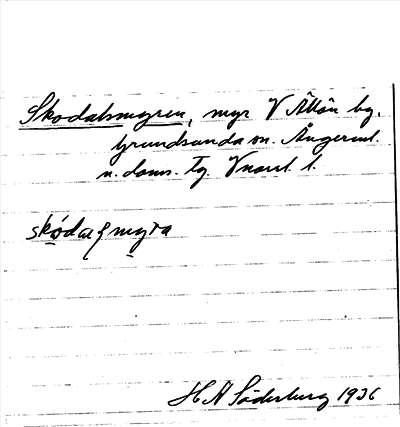 Skodalsmyren, myr V Ållön by,
Grundsunda sn. Ångerml.
n. doms. tg. Vnorrl. l.
skódalsmyra
H A Söderberg 1936